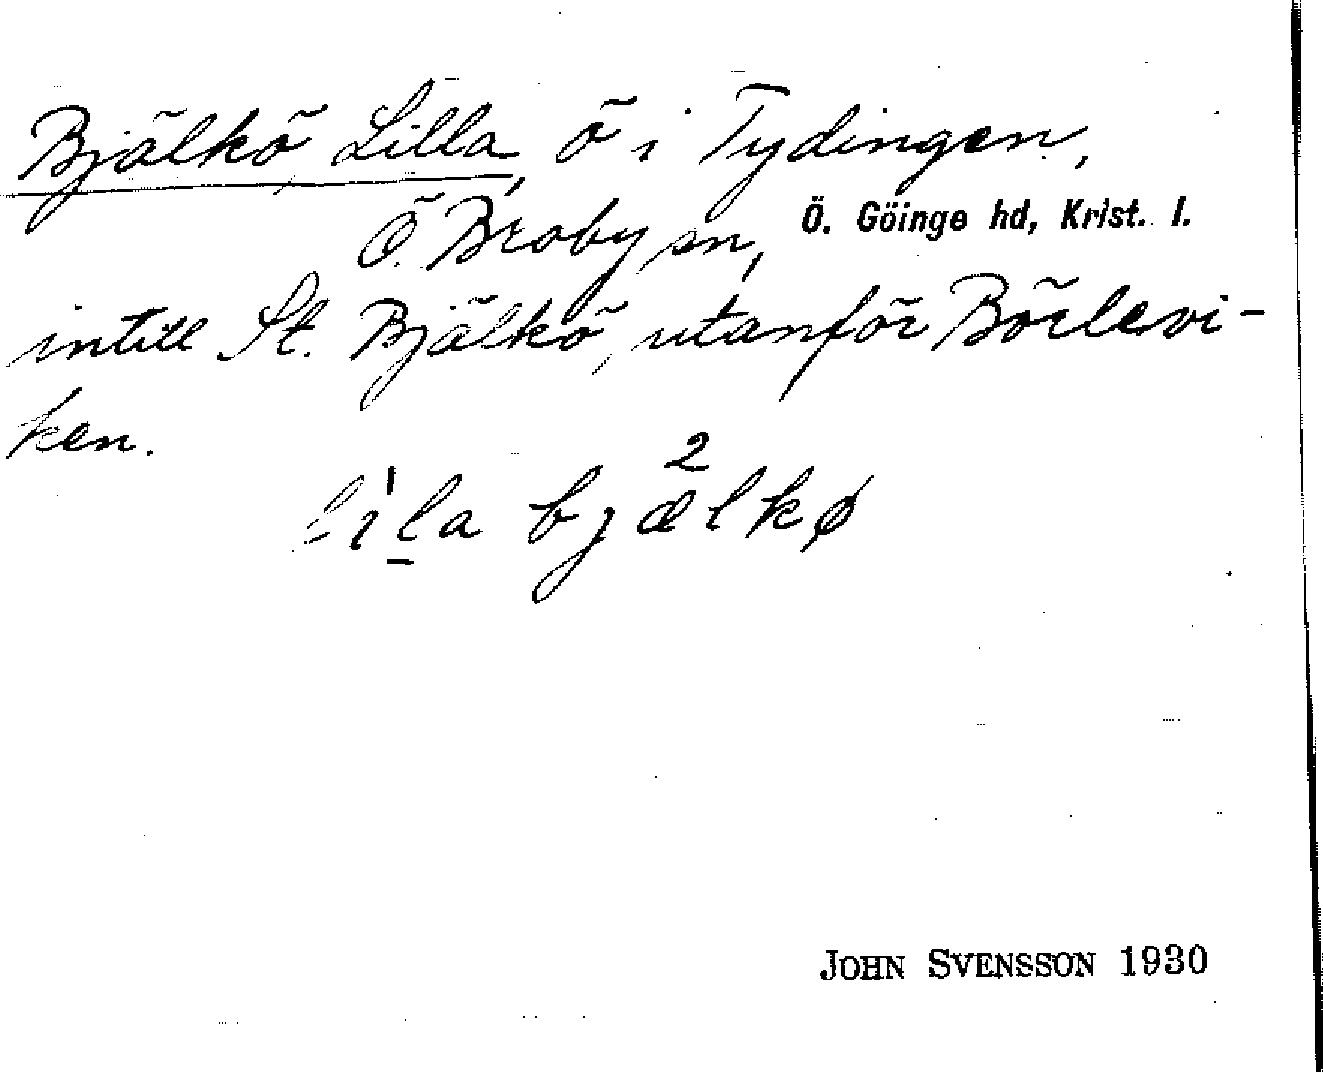 Bjälkö Lilla, ö i Tydingen,
Ö. Broby sn, Ö. Göinge hd, Krist. l.
intill St. Bjälkö, utanför Börlevi-
ken.
lìl̠a bjæ²lkø
JOHN SVENSSON 1930